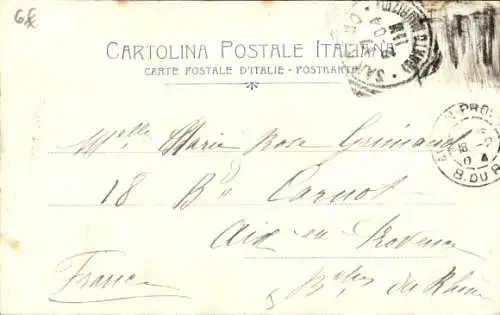 6
CARTOLINA POSTALE ITALIANA
CARTE POSTALE D'ITALIE - POSTKARTE
Melle Marie Rose Guimaud
18 Bd Carnot
Aix-en-Provence
France
Bches du Rhône
B. DU R